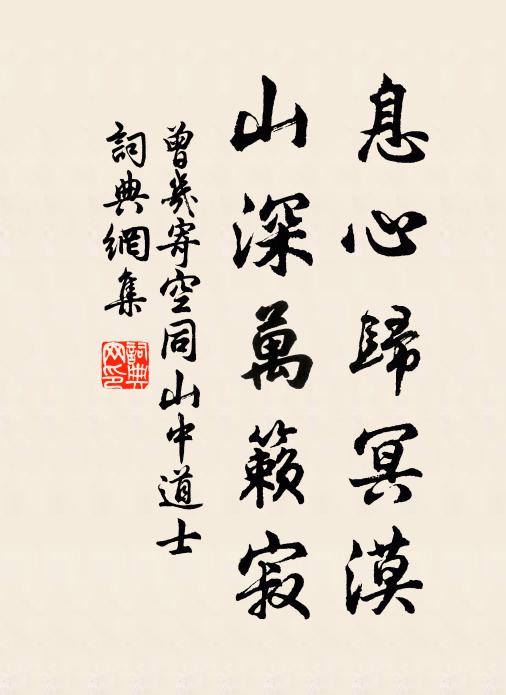 息心歸冥漠
山深萬籟寂
曾幾寄空同山中道士
詞典網集
詞典
网印